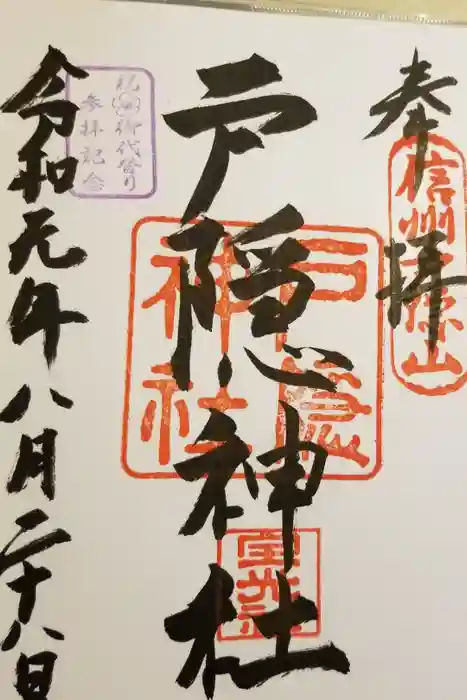 奉拝
信州戸隠山
戸隠神社
戸隠神社
祝御代替り
参拝記念
令和元年八月二十八日